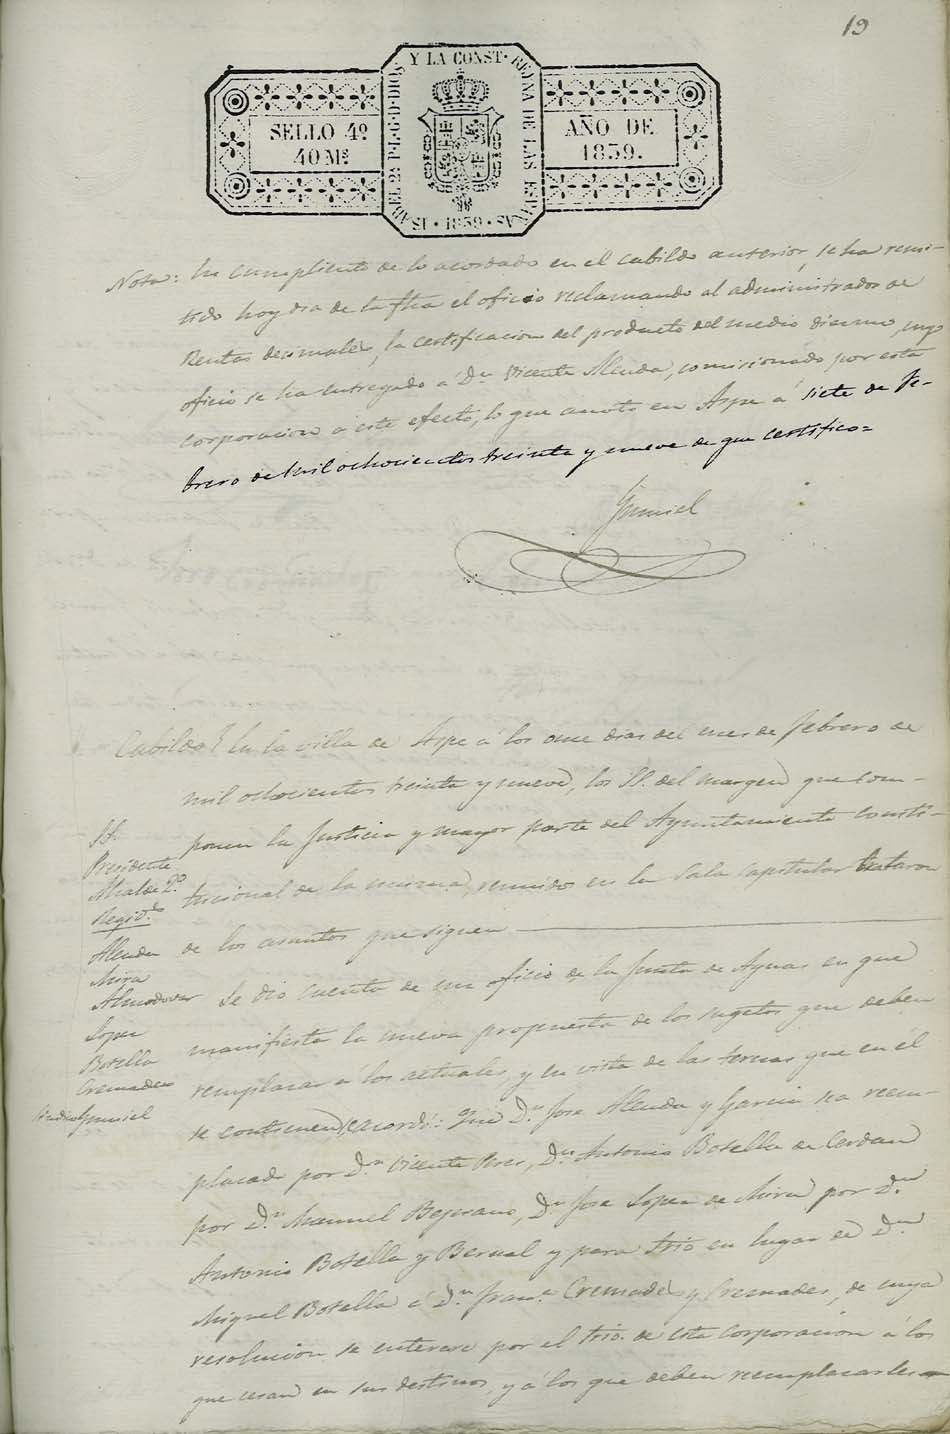 19
SELLO 4º
40 Ms
ISABEL 2ª P. L. G. D. DIOS Y LA CONST. REYNA DE LAS ESPAÑAS · 1839 ·
AÑO DE
1839.
Nota: En cumplimto de lo acordado en el cabildo anterior, se ha remi-
tido hoy dia de la fha el oficio reclamando al administrador de
Rentas decimales, la certificacion del producto del medio diezmo, cuyo
oficio se ha entregado á Dn Vicente Alenda, comisionado por esta
corporacion á este efecto, lo que anoto en Aspe á siete de fe-
brero de mil ochocientos treinta y nueve de que certifico=
Cabildo} En la villa de Aspe á los once dias del mes de febrero de
mil ochocientos treinta y nueve, los SS. del margen que com-
ponen la Justicia y mayor parte del Ayuntamiento consti-
tucional de la misma, reunidos en la Sala Capitular trataron
de los asuntos que siguen
SS.
Presidente
Alcalde 2º
Regids
Alenda
Mira
Almodovar
Lopez
Botella
Cremades
Se dio cuenta de un oficio de la Junta de Aguas en que
manifiesta la nueva propuesta de los sugetos que deben
remplazar á los actuales, y en vista de las ternas que en él
se contienen, se acordó: Que Dn Jose Alenda y Garcia sea reem-
plazado por Dn Vicente Pires, Dn Antonio Botella de Cerdan
por Dn Manuel Bejarano, Dn Jose Lopez de Mira por Dn
Antonio Botella y Bernal y para Srio en lugar de Dn
Miguel Botella á Dn Franco Cremades y Cremades, de cuya
resolucion se enterare por el Srio. de esta corporacion á los
que cesan en sus destinos, y á los que deben reemplazarles